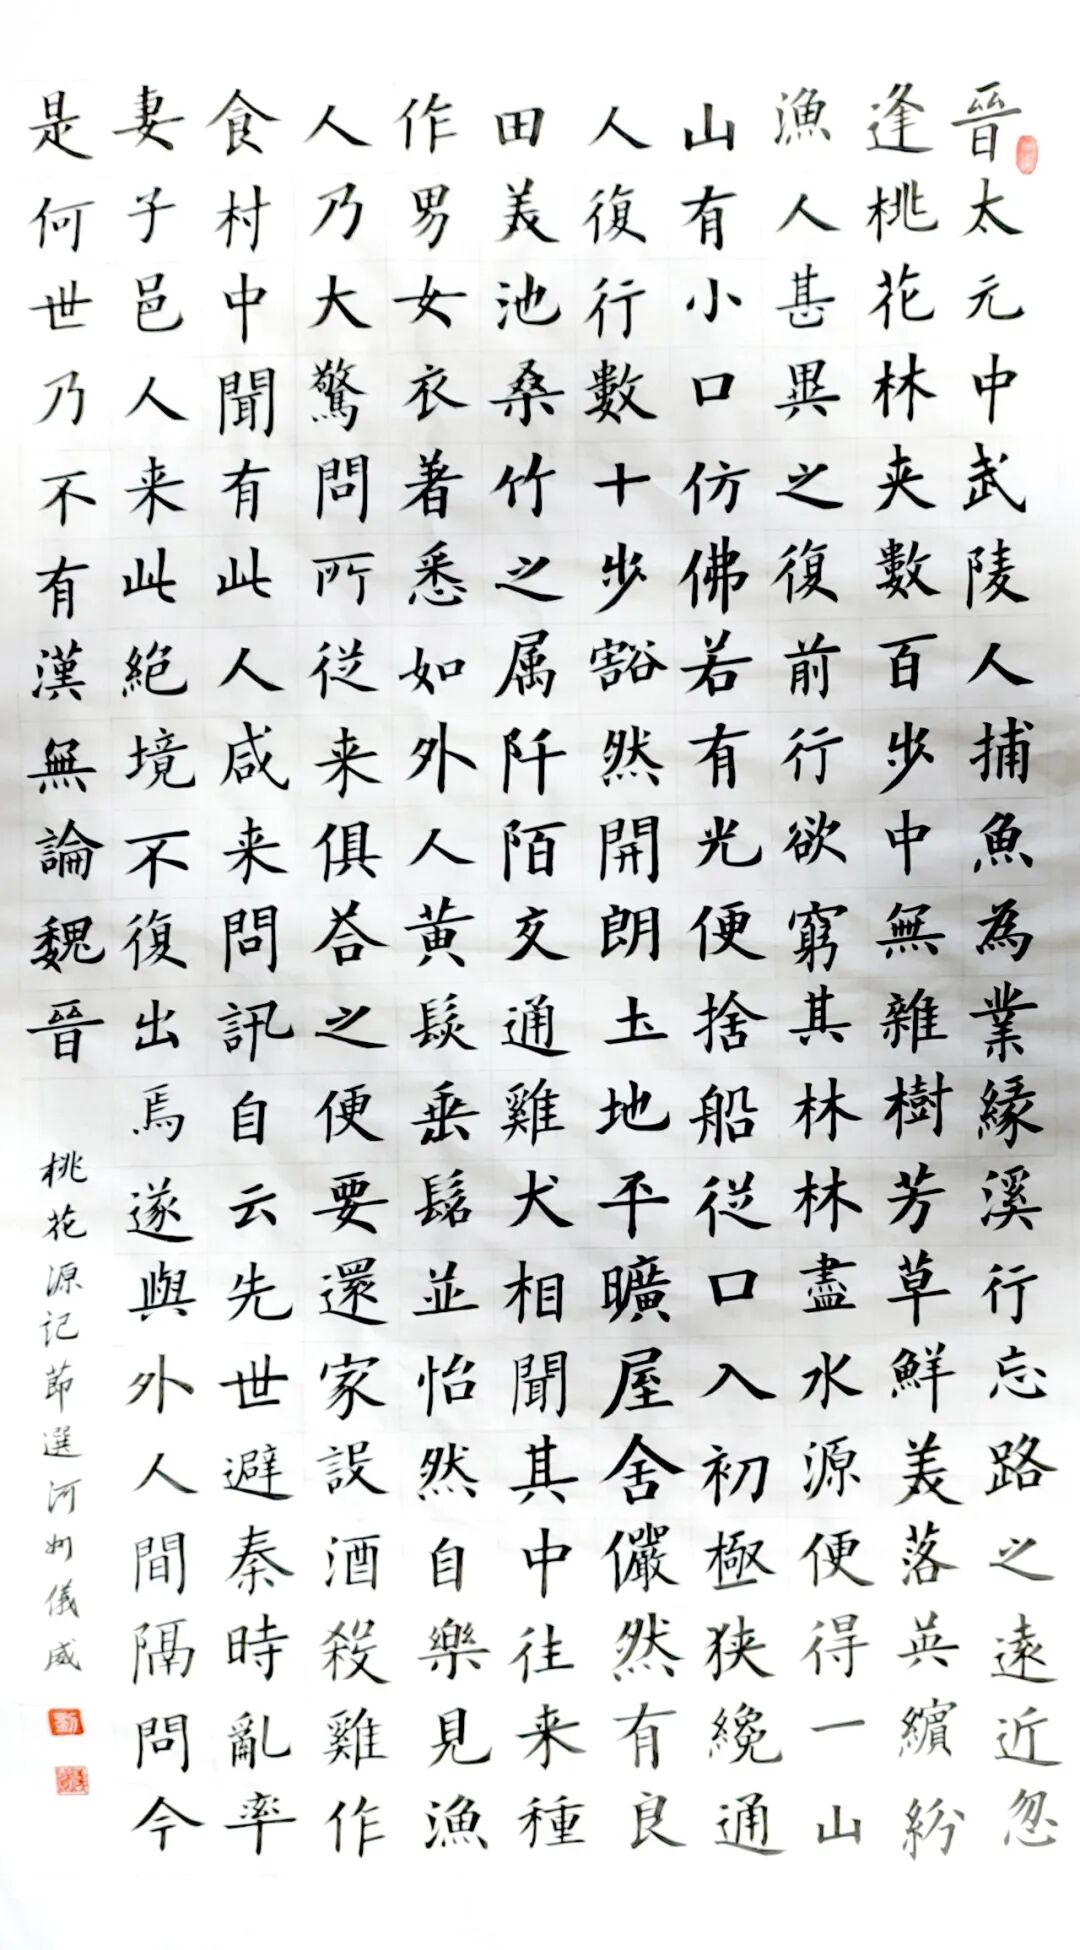 晉太元中武陵人捕魚為業緣溪行忘路之遠近忽
逢桃花林夹數百步中無雜樹芳草鮮美落英繽紛
漁人甚異之復前行欲窮其林林盡水源便得一山
山有小口仿佛若有光便捨船従口入初極狭纔通
人復行數十步豁然開朗土地平曠屋舍儼然有良
田美池桑竹之属阡陌交通雞犬相聞其中往来種
作男女衣著悉如外人黄髮垂髫並怡然自樂見漁
人乃大驚問所従来俱荅之便要還家設酒殺雞作
食村中聞有此人咸来問訊自云先世避秦時亂率
妻子邑人来此絕境不復出焉遂與外人間隔問今
是何世乃不有漢無論魏晉
桃花源記節選河州儀威